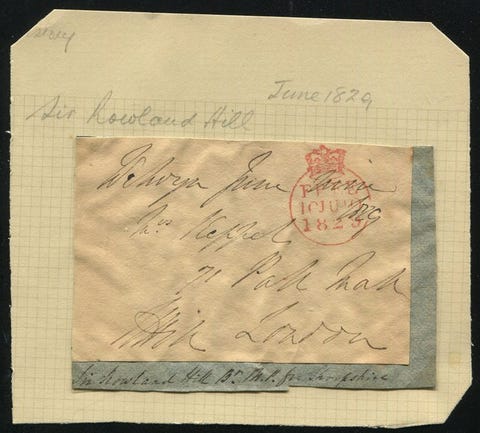 June 1829
Sir Rowland Hill
June nine
1829
FREE
10 JU 10
1829
Mrs Keppel
71 Pall Mall
London
Sir Rowland Hill Bt M.P. for Shropshire